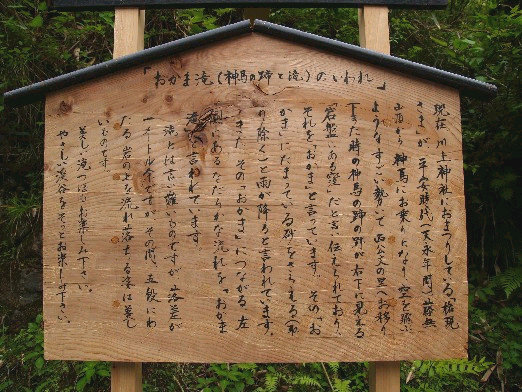 「おかま滝(神馬の蹄と滝)のいわれ」
現在 川上神社におまつりしてる「権現
さま」が平安時代(天永年間)藤無
山頂から 神馬にお乗りになり 空を飛ぶ
ようなすごい勢いで 公文の里へお移り
下さった時の神馬の蹄の跡が右下に見える
「岩盤にある窪」だと言い伝えられており、
それを「おかま」と言っています。その「お
かま」にたまっている砂をさらえる(取
り除く)と雨が降ると言われています。
また、その「おかま」につながる 左
側にあるなだらかな流れを「おかま
滝」と言われています。
滝とは言い難いものですが 落差が
一メートル余ですが、その間、五段にわ
たる 岩の上を流れ落ちる滝は美し
いものです。
美しい滝へはお楽しみ下さい。
やさしい渓谷をそっとお楽しみ下さい。